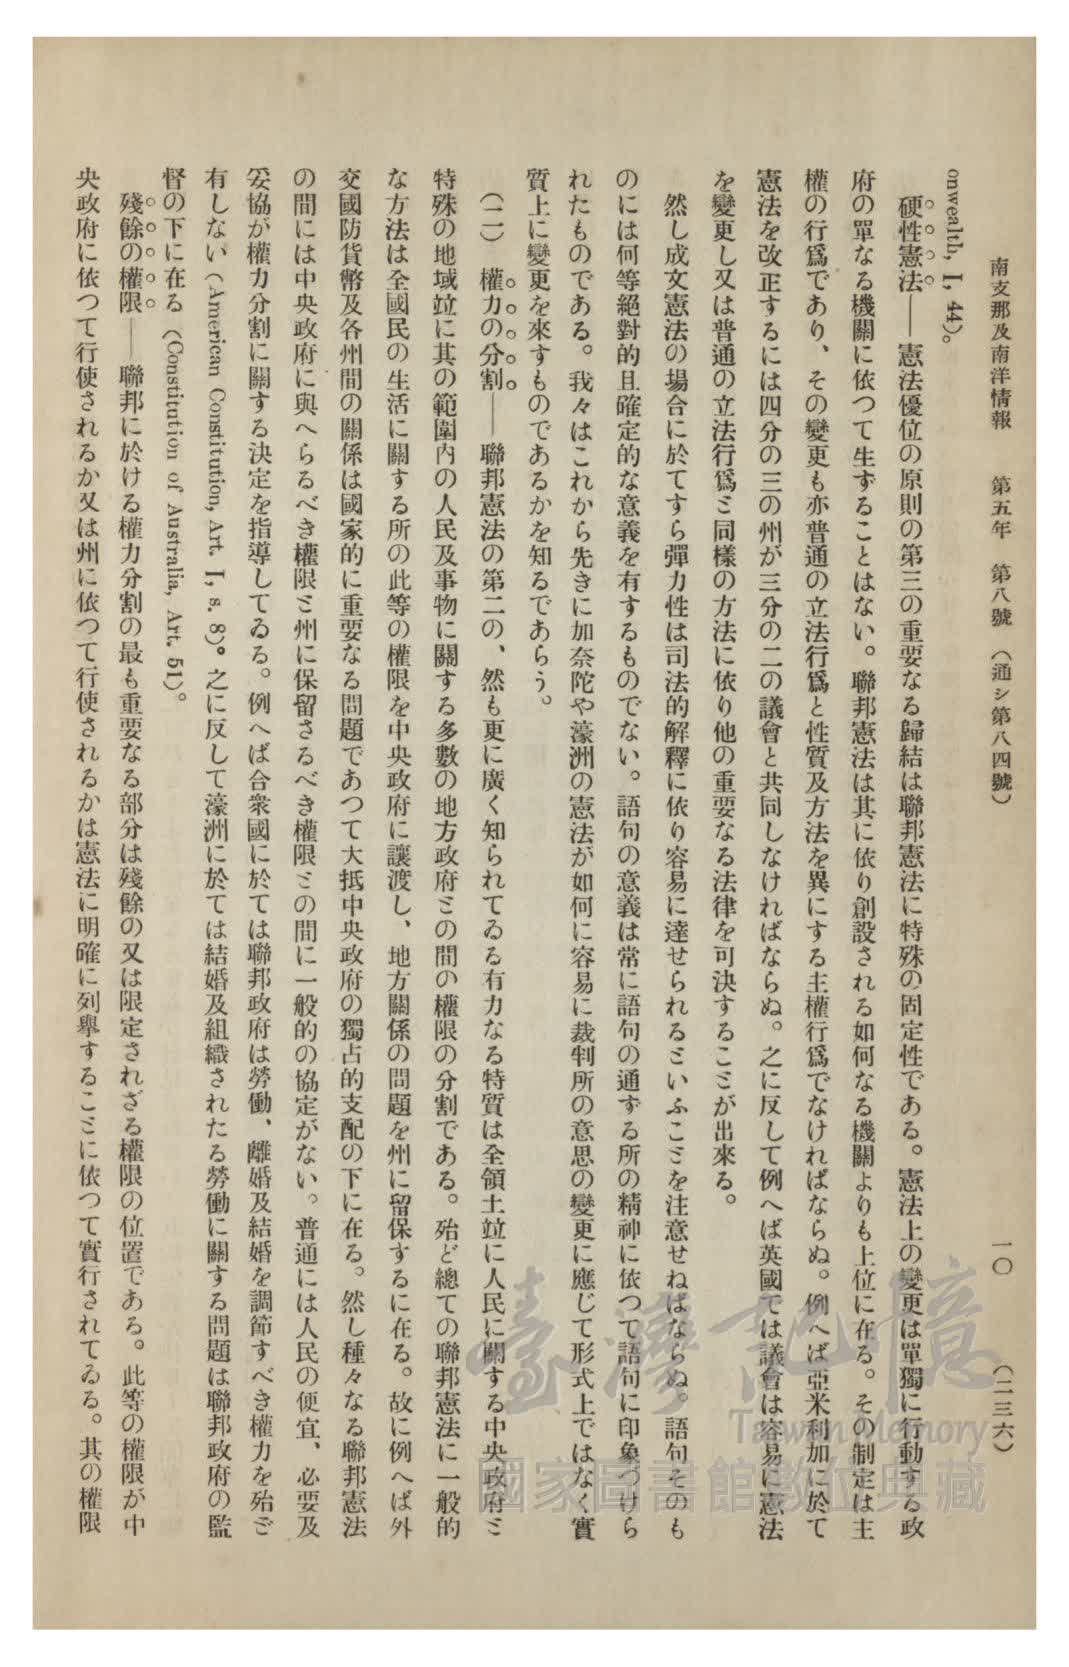 南支那及南洋情報　第五年　第八號　（通シ第八四號）　一〇　（二三六）
onwealth, I, 44)。
硬性憲法——憲法優位の原則の第三の重要なる歸結は聯邦憲法に特殊の固定性である。憲法上の變更は單獨に行動する政
府の單なる機關に依つて生ずることはない。聯邦憲法は其に依り創設される如何なる機關よりも上位に在る。その制定は主
權の行爲であり、その變更も亦普通の立法行爲と性質及方法を異にする主權行爲でなければならぬ。例へば亞米利加に於て
憲法を改正するには四分の三の州が三分の二の議會と共同しなければならぬ。之に反して例へば英國では議會は容易に憲法
を變更し又は普通の立法行爲と同樣の方法に依り他の重要なる法律を可決することが出來る。
然し成文憲法の場合に於てすら彈力性は司法的解釋に依り容易に達せられるといふことを注意せねばならぬ。語句そのも
のには何等絕對的且確定的な意義を有するものでない。語句の意義は常に語句の通ずる所の精神に依つて語句に印象づけら
れたものである。我々はこれから先きに加奈陀や濠洲の憲法が如何に容易に裁判所の意思の變更に應じて形式上ではなく實
質上に變更を來すものであるかを知るであらう。
（二）　權力の分割——聯邦憲法の第二の、然も更に廣く知られてゐる有力なる特質は全領土竝に人民に關する中央政府と
特殊の地域竝に其の範圍內の人民及事物に關する多數の地方政府との間の權限の分割である。殆ど總ての聯邦憲法に一般的
な方法は全國民の生活に關する所の此等の權限を中央政府に讓渡し、地方關係の問題を州に留保するに在る。故に例へば外
交國防貨幣及各州間の關係は國家的に重要なる問題であつて大抵中央政府の獨占的支配の下に在る。然し種々なる聯邦憲法
の間には中央政府に與へらるべき權限と州に保留さるべき權限との間に一般的の協定がない。普通には人民の便宜、必要及
妥協が權力分割に關する決定を指導してゐる。例へば合衆國に於ては聯邦政府は勞働、離婚及結婚を調節すべき權力を殆ど
有しない (American Constitution, Art. I, s. 8)。之に反して濠洲に於ては結婚及組織されたる勞働に關する問題は聯邦政府の監
督の下に在る (Constitution of Australia, Art. 51)。
殘餘の權限——聯邦に於ける權力分割の最も重要なる部分は殘餘の又は限定されざる權限の位置である。此等の權限が中
央政府に依つて行使されるか又は州に依つて行使されるかは憲法に明確に列擧することに依つて實行されてゐる。其の權限
臺灣記憶
Taiwan Memory
國家圖書館數位典藏